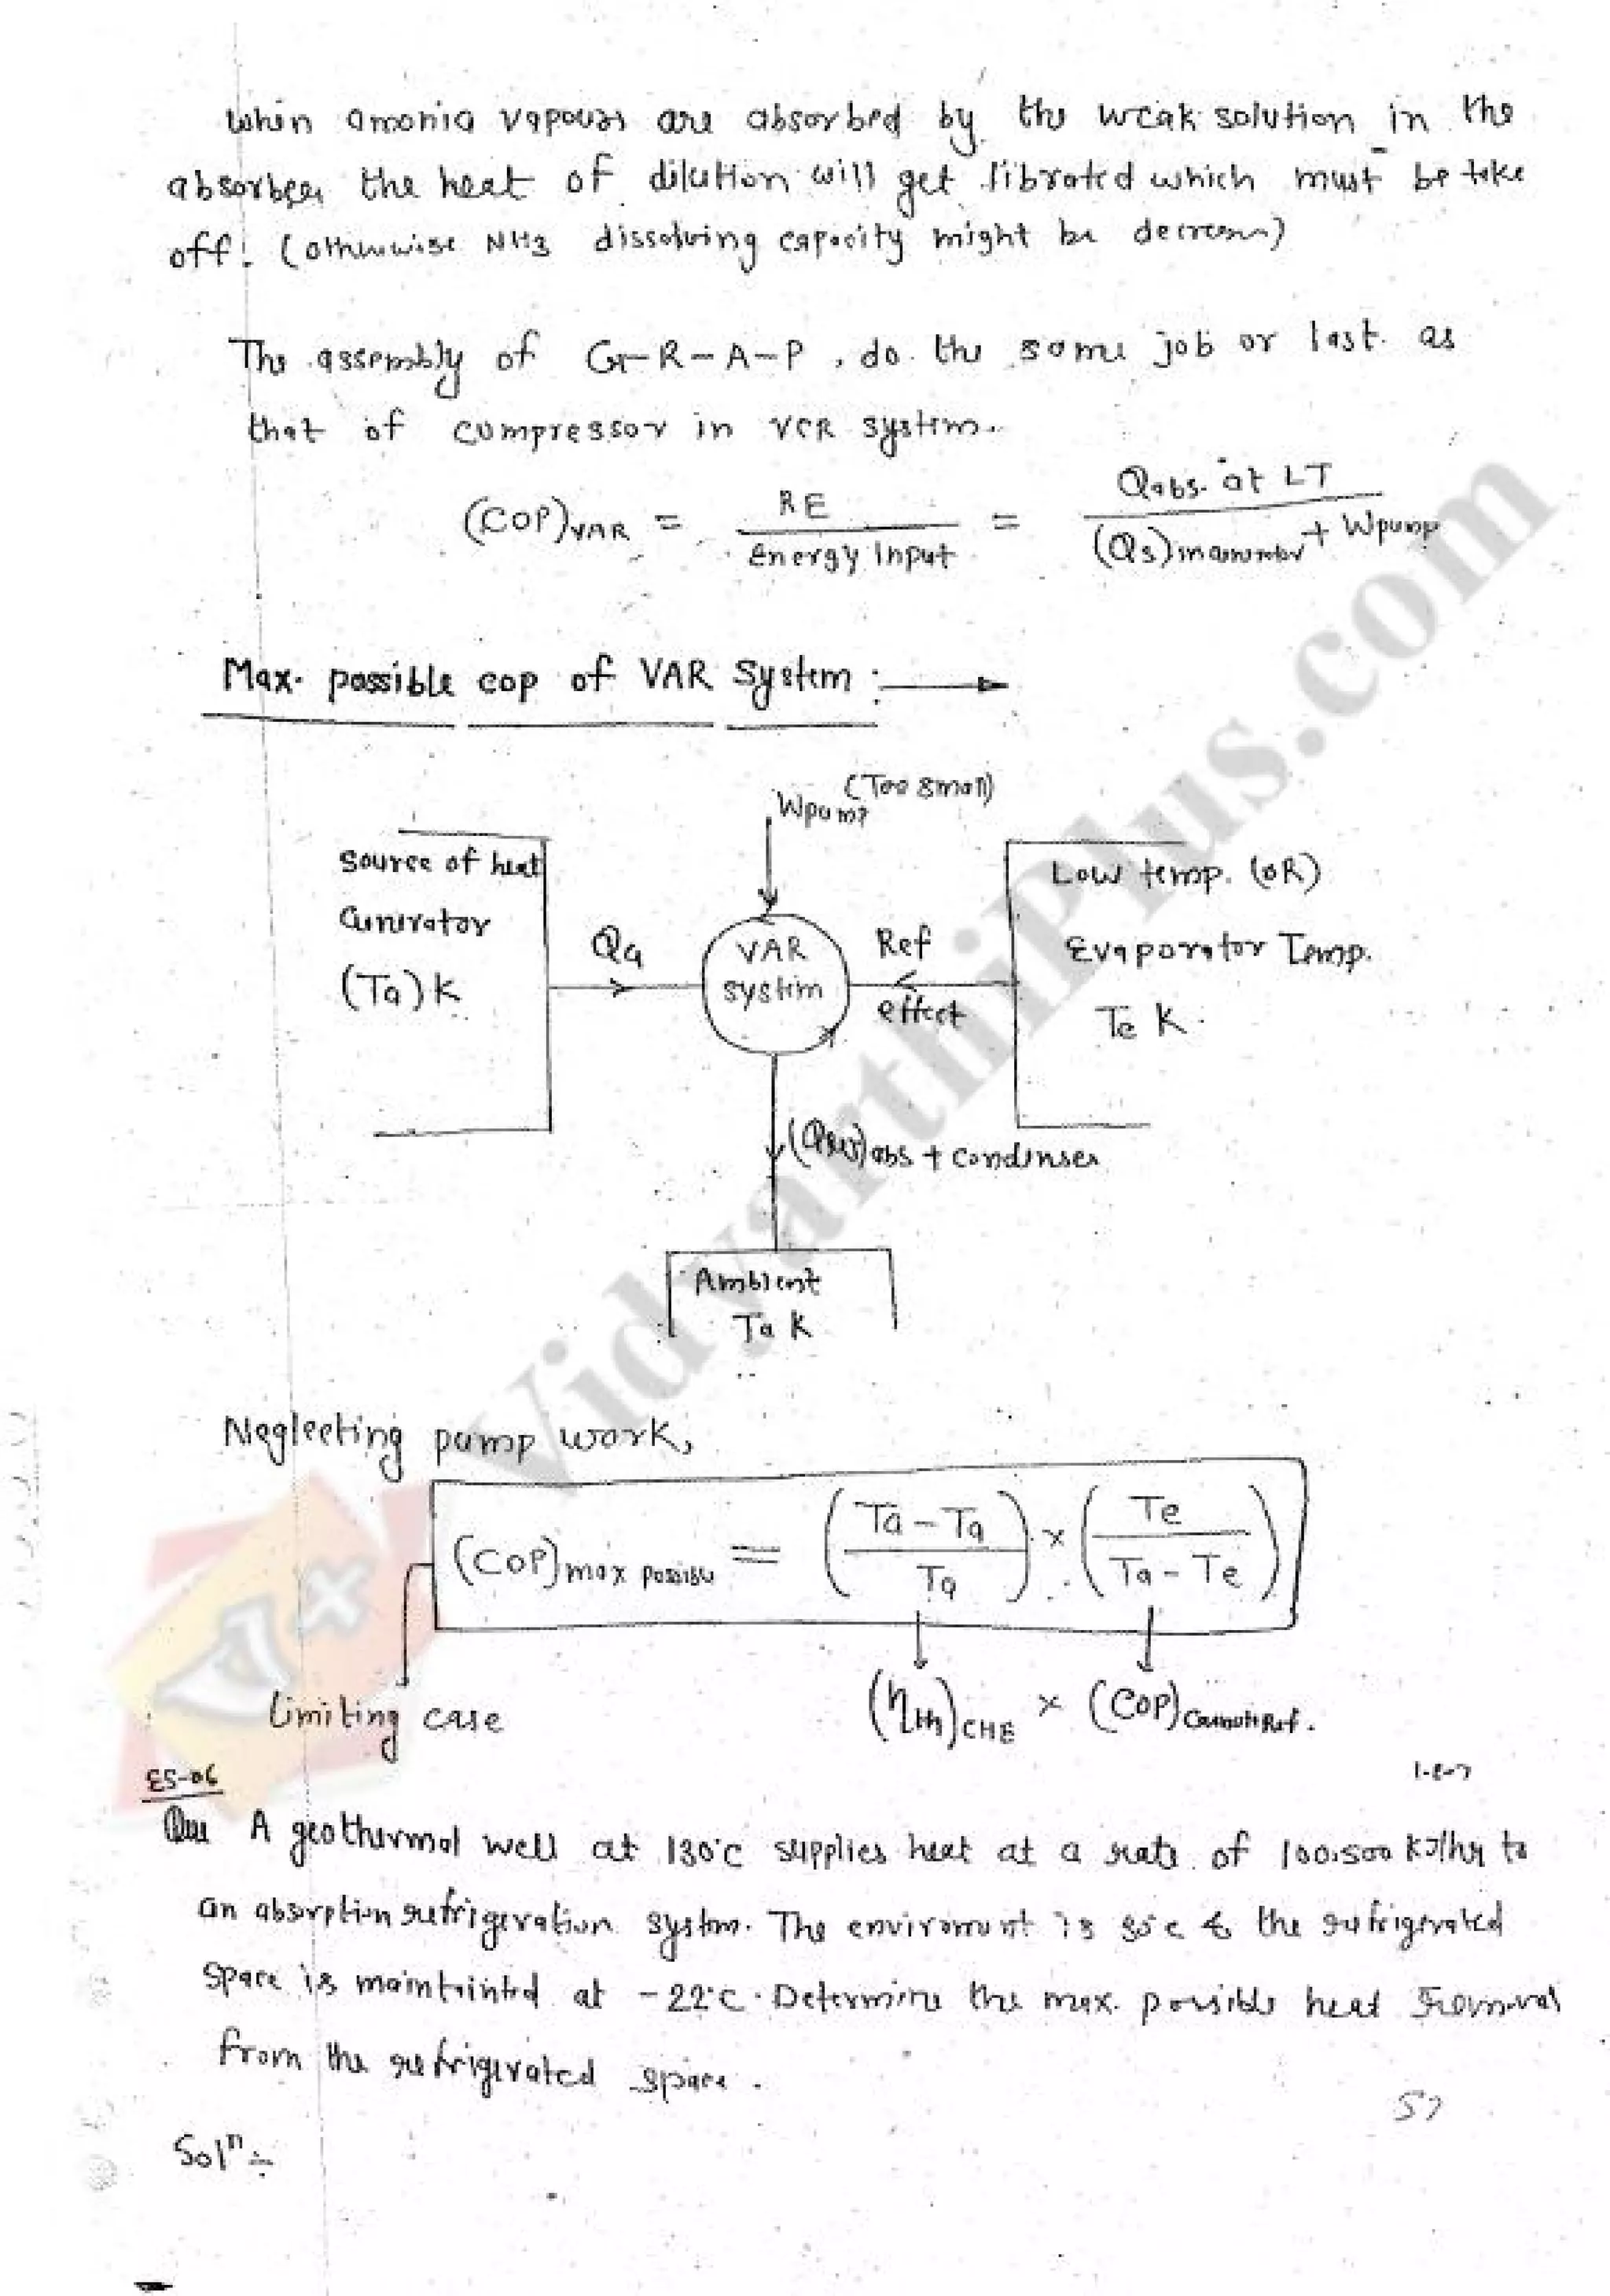 when amonia vapours are absorbed by the weak solution in the
absorber the heat of dilution will get librated which must be take
off. (otherwise NH3 dissolving capacity might be decrease)
The assembly of G-R-A-P, do the same job or last as
that of cumpressor in VCR system.
(COP)VAR = RE / Energy input = Qabs. at LT / (Qs)in generator + Wpump
Max. possible cop of VAR system :
Wpump (Too small)
Source of heat
Generator
(TG) K
QG
VAR
system
Ref
effect
Low temp. (OR)
Evaporator Temp.
Te K.
(QRej)abs + condenser
Ambient
Ta K
Neglecting pump work,
(COP)max possible = (TG - Ta / TG) × (Te / Ta - Te)
(ηth)CHE × (COP)Carnot Ref.
Limiting case
ES-06
Que A geothermal well at 130°C supplies heat at a rate of 100,500 KJ/hr to
an absorption refrigeration system. The enviroment is 30°c & the refrigerated
space is maintainted at -22°C. Determine the max. possible heat removal
from the refrigerated space.
57
Solⁿ:-
VidyarthiPlus.com